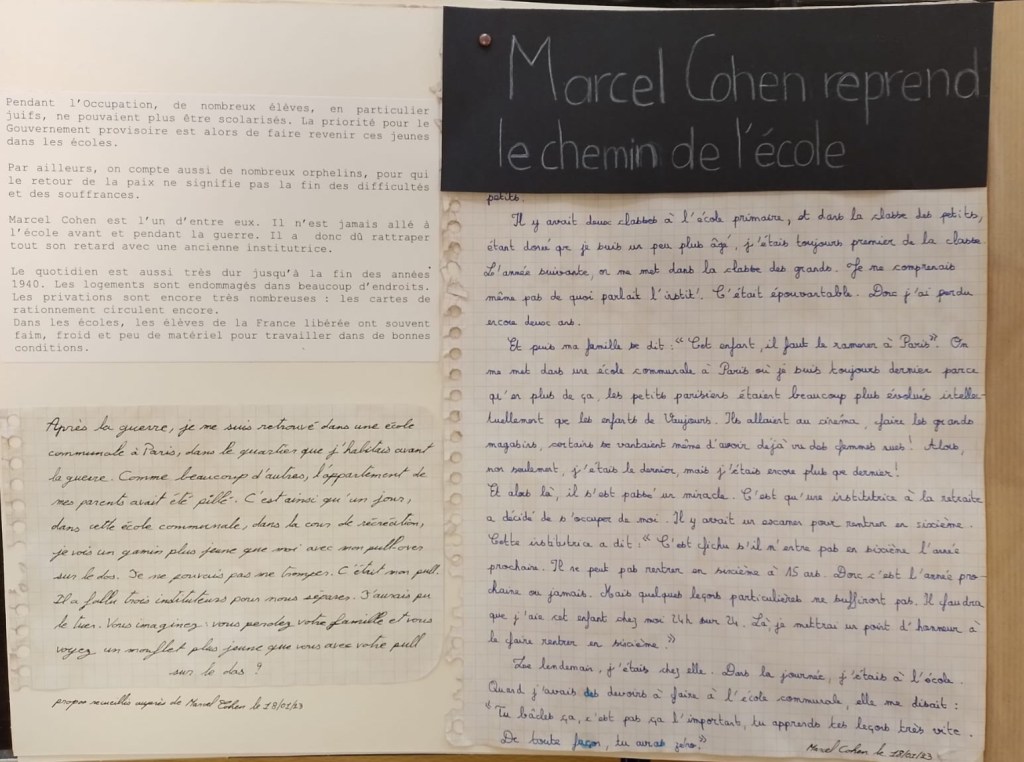 Pendant l'Occupation, de nombreux élèves, en particulier
juifs, ne pouvaient plus être scolarisés. La priorité pour le
Gouvernement provisoire est alors de faire revenir ces jeunes
dans les écoles.
Par ailleurs, on compte aussi de nombreux orphelins, pour qui
le retour de la paix ne signifie pas la fin des difficultés
et des souffrances.
Marcel Cohen est l'un d'entre eux. Il n'est jamais allé à
l'école avant et pendant la guerre. Il a donc dû rattraper
tout son retard avec une ancienne institutrice.
Le quotidien est aussi très dur jusqu'à la fin des années
1940. Les logements sont endommagés dans beaucoup d'endroits.
Les privations sont encore très nombreuses : les cartes de
rationnement circulent encore.
Dans les écoles, les élèves de la France libérée ont souvent
faim, froid et peu de matériel pour travailler dans de bonnes
conditions.
Après la guerre, je me suis retrouvé dans une école
communale à Paris, dans le quartier que j'habitais avant
la guerre. Comme beaucoup d'autres, l'appartement de
mes parents avait été pillé. C'est ainsi qu'un jour,
dans cette école communale, dans la cour de récréation,
je vois un gamin plus jeune que moi avec mon pull-over
sur le dos. Je ne pouvais pas me tromper. C'était mon pull.
Il a fallu trois instituteurs pour nous séparer. J'aurais pu
le tuer. Vous imaginez : vous perdez votre famille et vous
voyez un mouflet plus jeune que vous avec votre pull
sur le dos ?
propos recueillis auprès de Marcel Cohen le 18/01/23
Marcel Cohen reprend
le chemin de l'école
petits.
Il y avait deux classes à l'école primaire, et dans la classe des petits,
étant donné que je suis un peu plus âgé, j'étais toujours premier de la classe.
L'année suivante, on me met dans la classe des grands. Je ne comprenais
même pas de quoi parlait l'instit'. C'était épouvantable. Donc j'ai perdu
encore deux ans.
Et puis ma famille se dit : "Cet enfant, il faut le ramener à Paris". On
me met dans une école communale à Paris où je suis toujours dernier parce
qu'en plus de ça, les petits parisiens étaient beaucoup plus évolués intellec-
tuellement que les enfants de Vaujours. Ils allaient au cinéma, faire les grands
magasins, certains se vantaient même d'avoir déjà vu des femmes nues ! Alors,
non seulement, j'étais le dernier, mais j'étais encore plus que dernier !
Et alors là, il s'est passé un miracle. C'est qu'une institutrice à la retraite
a décidé de s'occuper de moi. Il y avait un examen pour rentrer en sixième.
Cette institutrice a dit : "C'est fichu s'il n'entre pas en sixième l'année
prochaine. Il ne peut pas rentrer en sixième à 15 ans. Donc c'est l'année pro-
chaine ou jamais. Mais quelques leçons particulières ne suffiront pas. Il faudra
que j'aie cet enfant chez moi 24h sur 24. Là je mettrai un point d'honneur à
le faire rentrer en sixième."
Le lendemain, j'étais chez elle. Dans la journée, j'étais à l'école.
Quand j'avais des devoirs à faire à l'école communale, elle me disait :
"Tu bâcles ça, c'est pas ça l'important, tu apprends tes leçons très vite.
De toute façon, tu auras zéro."
Marcel Cohen le 18/01/23